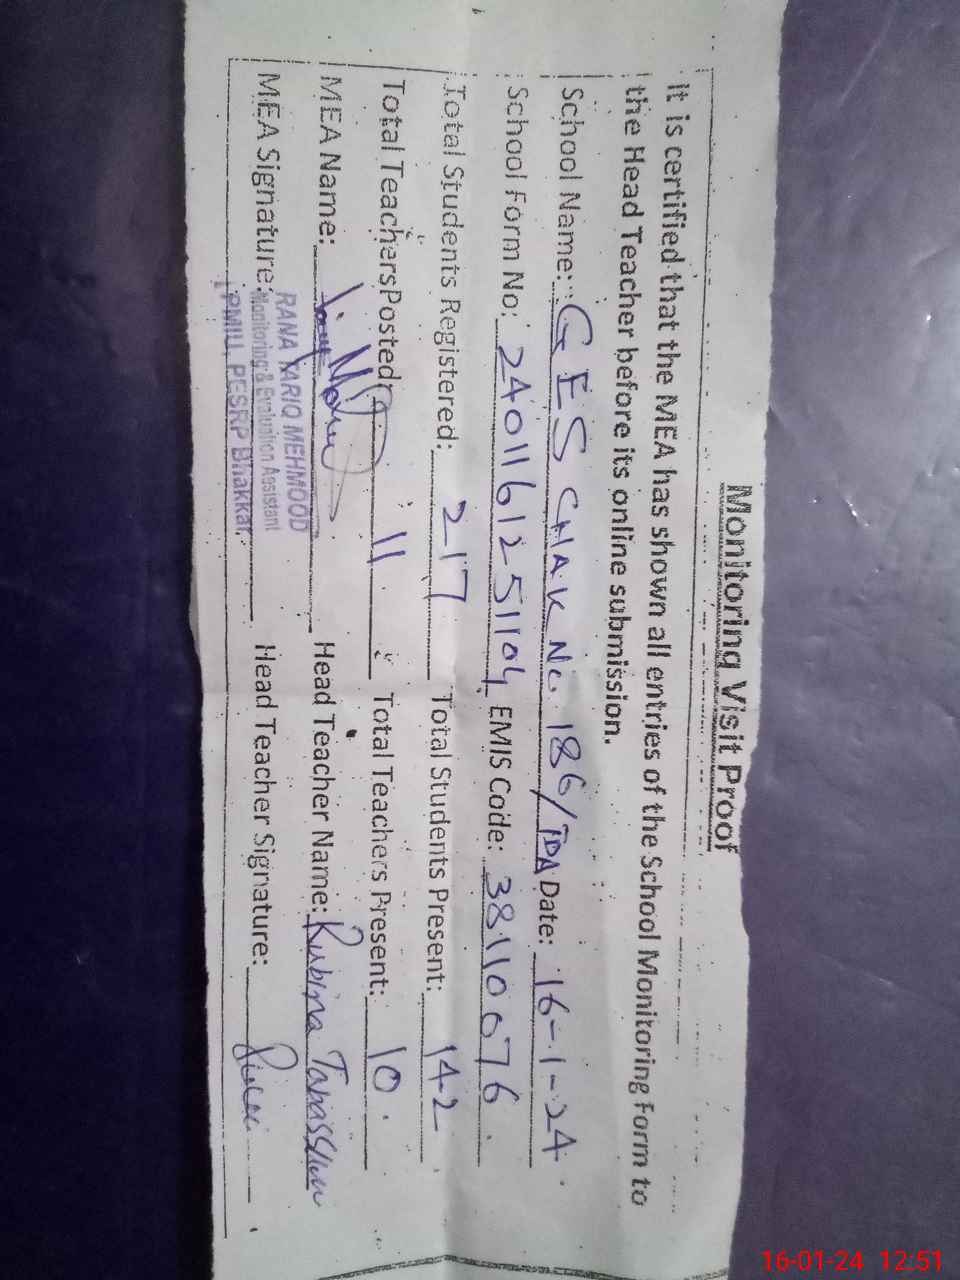 Monitoring Visit Proof
It is certified that the MEA has shown all entries of the School Monitoring Form to
the Head Teacher before its online submission.
School Name: GES CHAK No. 186/TDA Date: 16-1-24.
School Form No: 24011612 51104 EMIS Code: 38110076.
Total Students Registered: 217 Total Students Present: 142
Total Teachers Posted: 11 Total Teachers Present: 10.
MEA Name: Head Teacher Name: Rubina Tabassum
MEA Signature: Head Teacher Signature:
RANA TARIQ MEHMOOD
Monitoring & Evaluation Assistant
PMIU, PESRP Bhakkar.
16-01-24 12:51